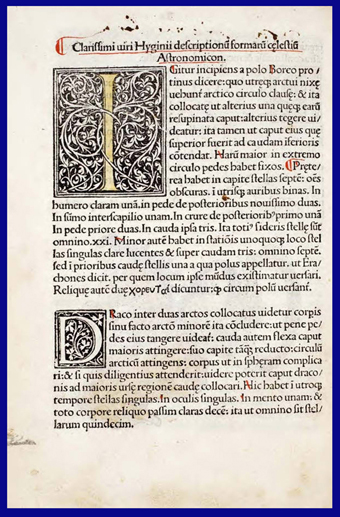 Clarissimi uiri Hyginii descriptionũ formarũ cęlestiũ
Astronomicon.
IGitur incipiens a polo Boreo pro/
tinus dicere: quo utręq; arctui nixę
uebunt́ arctico circulo clausę: & ita
collocatę ut alterius una quęq; earũ
resupinata caput: alterius tegere ui/
deatur: ita tamen ut caput eius quę
superior fuerit ad caudam iferioris
cótendat. Harũ maior in extremo
circulo pedes habet fixos. Pręte/
rea babet in capite stellas septé: oés
obscuras. i utrisq; auribus binas. In
humero claram unã. in pede de posterioribus nouissimo duas.
In sũmo interscapilio unam. In crure de posteriorib⁹ primo unã
In pede priore duas. In cauda ipsa tris. Ita toti⁹ sideris stellę sũt
omnino.xxi. Minor auté babet in statióis unoquoq; loco stel
las singulas clare lucentes & super caudam tris: omnino septé.
sed i prioribus caudę stellis una a qua polus appellatur. ut Era/
thones dicit. per quem locum ipse mũdus existimatur uersari.
Reliquę auté duę χορευταί dicuntur: q circum polũ uersant́.
DRaco inter duas arctos collocatus uidetur corpis
sinu facto arctón minoré ita cócludere: ut pene pe/
des eius tangere uideat́: cauda autem flexa caput
maioris attingere: suo capite táq̃ reducto: circulũ
arcticũ attingens: corpus ut in spḥeram complica
ri: & si quis diligentius attenderit: uidere poterit caput draco/
nis ad maioris ursę regioné caudę collocari. Hic babet i utroq;
tempore stellas singulas. In oculis singulas. In mento unam: &
toto corpore reliquo passim claras decé: ita ut omnino sit stel/
larum quindecim.